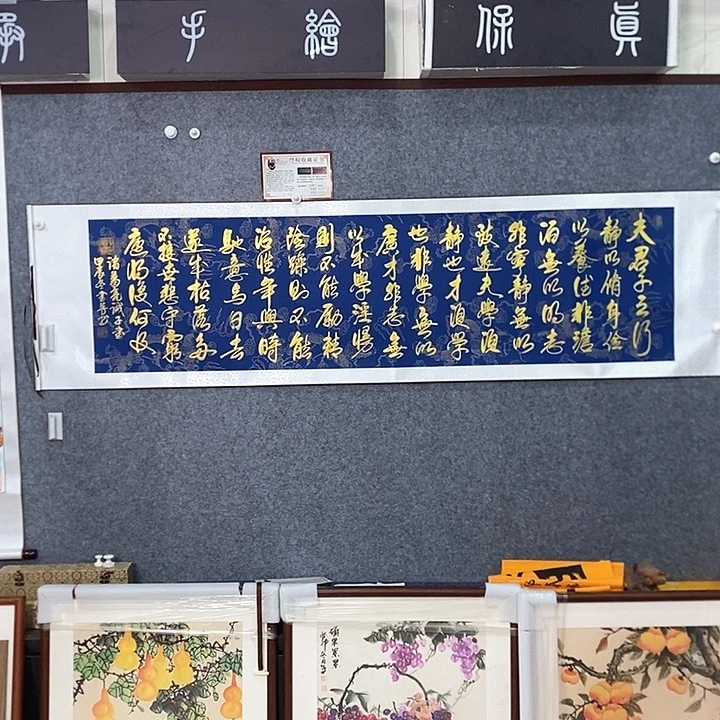 手繪
保眞
夫君子之行
静以脩身儉
以養德非澹
泊無以明志
非寧静無以
致遠夫學須
静也才須學
也非學無以
廣才非志無
以成學淫慢
則不能勵精
險躁則不能
治性年與時
馳意与日去
遂成枯落多
不接世悲守窮
廬將復何及
諸葛亮誡子書